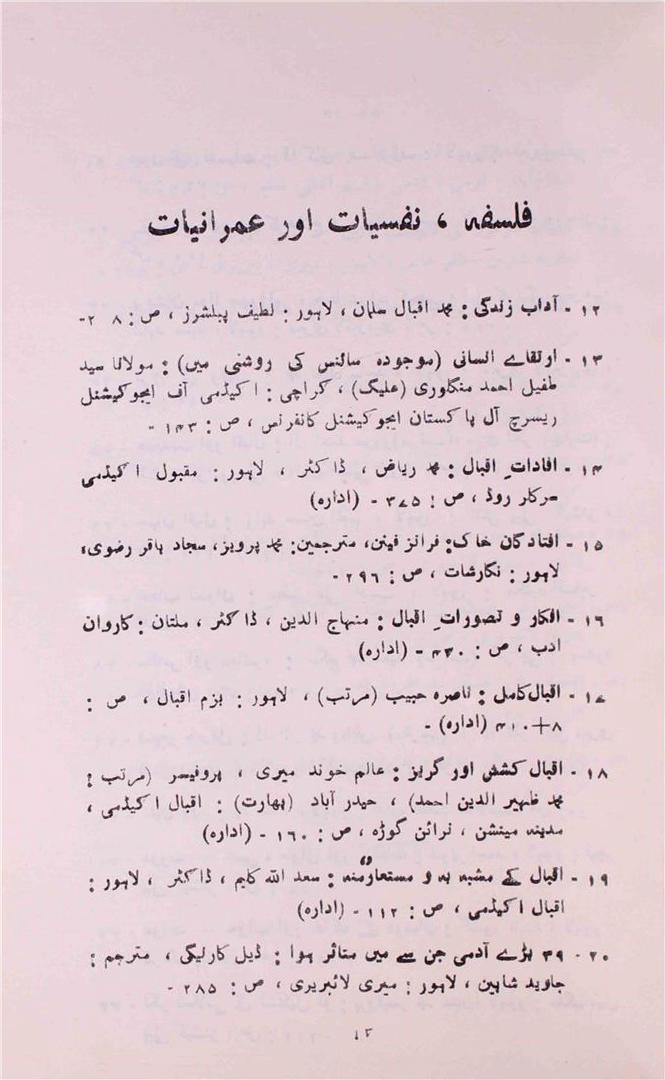 فلسفہ ، نفسیات اور عمرانیات
۱۲ - آداب زندگی : محمد اقبال سلمان ، لاہور : لطیف پبلشرز ، ص : ۲۰۸ -
۱۳ - ارتقاے انسانی (موجودہ سائنس کی روشنی میں) : مولانا سید
طفیل احمد منگلوری (علیگ) ، کراچی : اکیڈمی آف ایجوکیشنل
ریسرچ آل پاکستان ایجوکیشنل کانفرنس ، ص : ۱۴۳ -
۱۴ - افادات اقبال : محمد ریاض ، ڈاکٹر ، لاہور : مقبول اکیڈمی
سرکلر روڈ ، ص : ۳۷۵ - (ادارہ)
۱۵ - افتادگان خاک : فرانز فینن، مترجمین : محمد پرویز، سجاد باقر رضوی،
لاہور : نگارشات ، ص : ۲۹۶ -
۱۶ - افکار و تصورات اقبال : منہاج الدین ، ڈاکٹر ، ملتان : کاروان
ادب ، ص : ۴۳۰ - (ادارہ)
۱۷ - اقبال کامل : ناصرہ حبیب (مرتب) ، لاہور : بزم اقبال ، ص :
۸+۴۱۰ (ادارہ) -
۱۸ - اقبال کشش اور گریز : عالم خوند میری ، پروفیسر (مرتب :
محمد ظہیر الدین احمد) ، حیدر آباد (بھارت) : اقبال اکیڈمی ،
مدینہ مینشن ، نرائن گوڑہ ، ص : ۱۶۰ - (ادارہ)
۱۹ - اقبال کے مشبہ بہ و مستعارمنہ : سعد اللہ کلیم ، ڈاکٹر ، لاہور :
اقبال اکیڈمی ، ص : ۱۱۲ - (ادارہ)
۲۰ - ۳۹ بڑے آدمی جن سے میں متاثر ہوا : ڈیل کارنیگی ، مترجم :
جاوید شاہین ، لاہور : میری لائبریری ، ص : ۲۸۵ -
۱۲